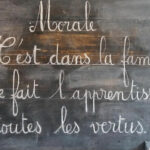 Morale
C'est dans la fam
se fait l'apprentis
toutes les vertus.